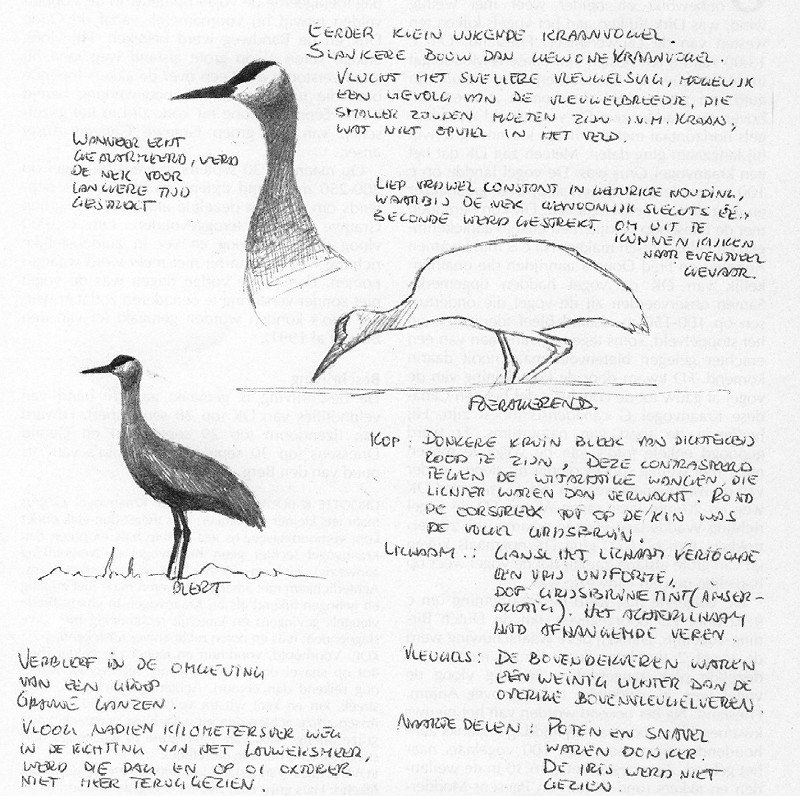 EERDER KLEIN LIJKENDE KRAANVOGEL.
SLANKERE BOUW DAN GEWONE KRAANVOGEL.
VLUCHT MET SNELLERE VLEUGELSLAG, MOGELIJK
EEN GEVOLG VAN DE VLEUGELBREEDTE, DIE
SMALLER ZOUDEN MOETEN ZIJN I.V.M. KRAAN,
WAT NIET OPVIEL IN HET VELD.
WANNEER ECHT
GEALARMEERD, WERD
DE NEK VOOR
LANGERE TIJD
GESTREKT
LIEP VRIJWEL CONSTANT IN GEBUKTE HOUDING,
WAARBIJ DE NEK GEWOONLIJK SLECHTS ÉÉN
SECONDE WERD GESTREKT OM UIT TE
KUNNEN KIJKEN
NAAR EVENTUEEL
GEVAAR.
FOERAGEREND.
KOP: DONKERE KRUIN BLEEK VAN DICHTERBIJ
ROOD TE ZIJN, DEZE CONTRASTEERD
TEGEN DE WITACHTIGE WANGEN, DIE
LICHTER WAREN DAN VERWACHT. ROND
DE OORSTREEK TOT OP DE KIN WAS
DE VOGEL GRIJSBRUIN.
LICHAAM.: GANS HET LICHAAM VERTOONDE
EEN VRIJ UNIFORME,
DOF GRIJSBRUINE TINT (
). HET ACHTERLICHAAM
HAD AFHANGENDE VEREN.
ALERT
VERBLEEF IN DE OMGEVING
VAN EEN GROEP
GRAUWE GANZEN.
VLOOG NADIEN KILOMETERSVER WEG
IN DE RICHTING VAN HET LAUWERSMEER,
WERD DIE DAG EN OP 01 OKTOBER
NIET MEER TERUGGEZIEN.
VLEUGELS: DE BOVENDEKVEREN WAREN
EEN WEINIG LICHTER DAN DE
OVERIGE BOVENVLEUGELVEREN.
NAAKTE DELEN: POTEN EN SNAVEL
WAREN DONKER.
DE IRIS WERD NIET
GEZIEN.